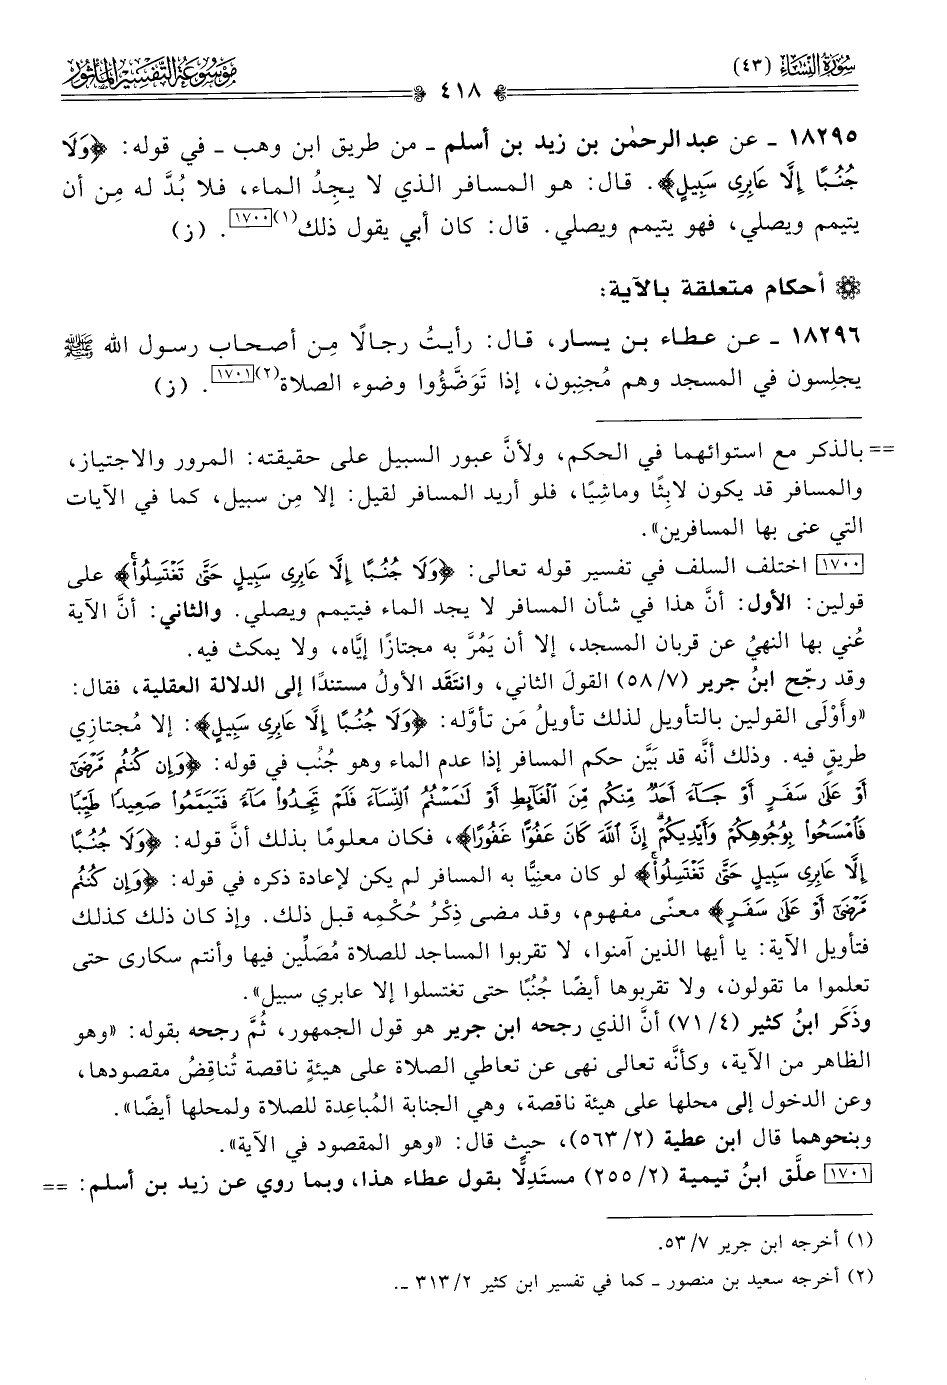 سُورَةُ النِّسَاءِ (٤٣)
مَوْسُوعَةُ التَّفْسِيرِ المَأْثُورِ
٤١٨
١٨٢٩٥ ـ عن عبد الرحمٰن بن زيد بن أسلم ـ من طريق ابن وهب ـ في قوله: ﴿وَلَا
جُنُبًا إِلَّا عَابِرِى سَبِيلٍ﴾. قال: هو المسافر الذي لا يجِدُ الماء، فلا بُدَّ له مِن أن
يتيمم ويصلي، فهو يتيمم ويصلي. قال: كان أبي يقول ذلك(١)[١٧٠٠]. (ز)
أحكام متعلقة بالآية:
١٨٢٩٦ ـ عن عطاء بن يسار، قال: رأيتُ رجالًا مِن أصحاب رسول الله ﷺ
يجلِسون في المسجد وهم مُجنِبون، إذا تَوَضَّؤُوا وضوء الصلاة(٢)[١٧٠١]. (ز)
== بالذكر مع استوائهما في الحكم، ولأنَّ عبور السبيل على حقيقته: المرور والاجتياز،
والمسافر قد يكون لابِثًا وماشِيًا، فلو أريد المسافر لقيل: إلا مِن سبيل، كما في الآيات
التي عنى بها المسافرين».
[١٧٠٠] اختلف السلف في تفسير قوله تعالى: ﴿وَلَا جُنُبًا إِلَّا عَابِرِى سَبِيلٍ حَتَّى تَغْتَسِلُواْ﴾ على
قولين: الأول: أنَّ هذا في شأن المسافر لا يجد الماء فيتيمم ويصلي. والثاني: أنَّ الآية
عُني بها النهيُ عن قربان المسجد، إلا أن يَمُرَّ به مجتازًا إيَّاه، ولا يمكث فيه.
وقد رجّح ابنُ جرير (٥٨/٧) القولَ الثاني، وانتَقَد الأولُ مستندًا إلى الدلالة العقلية، فقال:
«وأَوْلَى القولين بالتأويل لذلك تأويلُ مَن تأوَّله: ﴿وَلَا جُنُبًا إِلَّا عَابِرِى سَبِيلٍ﴾: إلا مُجتازي
طريقٍ فيه. وذلك أنَّه قد بَيَّن حكم المسافر إذا عدم الماء وهو جُنُب في قوله: ﴿وَإِن كُنتُم مَّرْضَىٰٓ
أَوْ عَلَىٰ سَفَرٍ أَوْ جَآءَ أَحَدٌ مِّنكُم مِّنَ ٱلْغَآئِطِ أَوْ لَٰمَسْتُمُ ٱلنِّسَآءَ فَلَمْ تَجِدُواْ مَآءً فَتَيَمَّمُواْ صَعِيدًا طَيِّبًا
فَٱمْسَحُواْ بِوُجُوهِكُمْ وَأَيْدِيكُمْ إِنَّ ٱللَّهَ كَانَ عَفُوًّا غَفُورًا﴾، فكان معلومًا بذلك أنَّ قوله: ﴿وَلَا جُنُبًا
إِلَّا عَابِرِى سَبِيلٍ حَتَّى تَغْتَسِلُواْ﴾ لو كان معنِيًّا به المسافر لم يكن لإعادة ذكره في قوله: ﴿وَإِن كُنتُم
مَّرْضَىٰٓ أَوْ عَلَىٰ سَفَرٍ﴾ معنًى مفهوم، وقد مضى ذِكْرُ حُكْمِه قبل ذلك. وإذ كان ذلك كذلك
فتأويل الآية: يا أيها الذين آمنوا، لا تقربوا المساجد للصلاة مُصَلِّين فيها وأنتم سكارى حتى
تعلموا ما تقولون، ولا تقربوها أيضًا جُنُبًا حتى تغتسلوا إلا عابري سبيل».
وذَكَر ابنُ كثير (٧١/٤) أنَّ الذي رجحه ابن جرير هو قول الجمهور، ثُمَّ رجحه بقوله: «وهو
الظاهر من الآية، وكأنَّه تعالى نهى عن تعاطي الصلاة على هيئةٍ ناقصة تُناقِضُ مقصودها،
وعن الدخول إلى محلها على هيئة ناقصة، وهي الجنابة المُباعِدة للصلاة ولمحلها أيضًا».
وبنحوهما قال ابن عطية (٥٦٣/٢)، حيث قال: «وهو المقصود في الآية».
[١٧٠١] علَّق ابنُ تيمية (٢٥٥/٢) مستَدِلًّا بقول عطاء هذا، وبما روي عن زيد بن أسلم: ==
(١) أخرجه ابن جرير ٥٣/٧.
(٢) أخرجه سعيد بن منصور ـ كما في تفسير ابن كثير ٣١٣/٢ ـ.